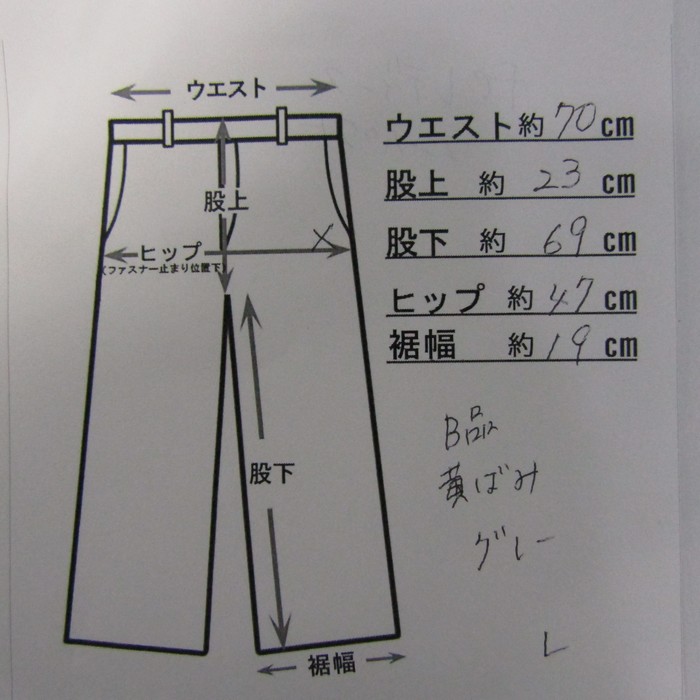 ウエスト
股上
ヒップ
(ファスナー止まり位置下)
股下
裾幅
ウエスト約 70 cm
股上 約 23 cm
股下 約 69 cm
ヒップ 約 47 cm
裾幅 約 19 cm
B品
黄ばみ
グレー
L